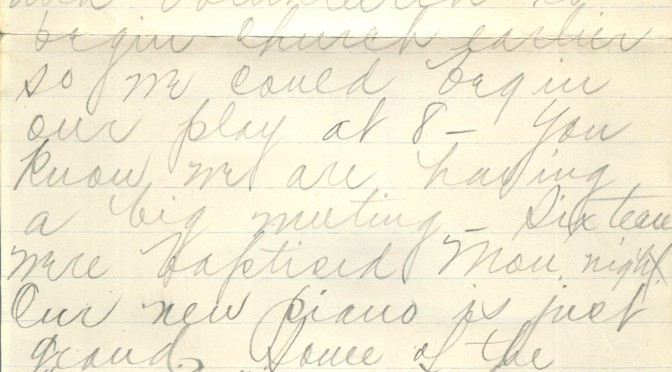 and volunteered to
begin church earlier
so we could begin
our play at 8 – You
know we are having
a big meeting – Sixteen
were baptised Mon. night
Our new piano is just
grand. Some of the